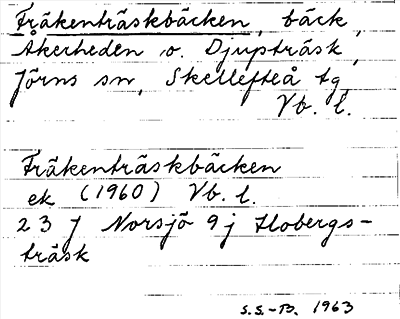 Fräkenträskbäcken, bäck,
Åkerheden o. Djupträsk,
Jörns sn, Skellefteå tg
Vb. l.
Fräkenträskbäcken
ek (1960) Vb. l.
23 J Norsjö 9j Flobergs-
träsk
S.S.-B. 1963